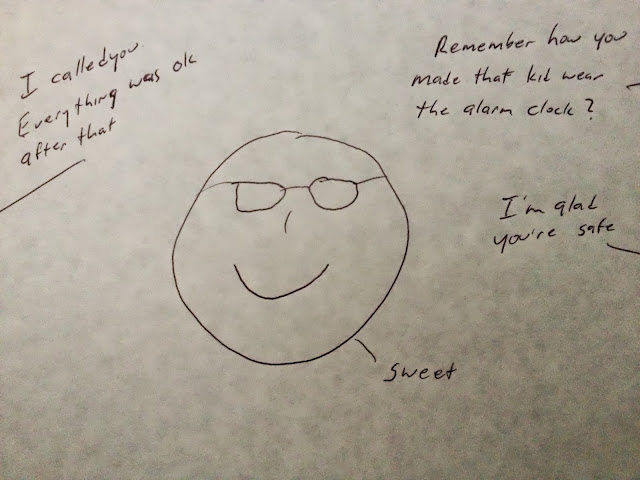 I called you.
Everything was ok
after that
Remember how you
made that kid wear
the alarm clock?
I'm glad
you're safe
Sweet